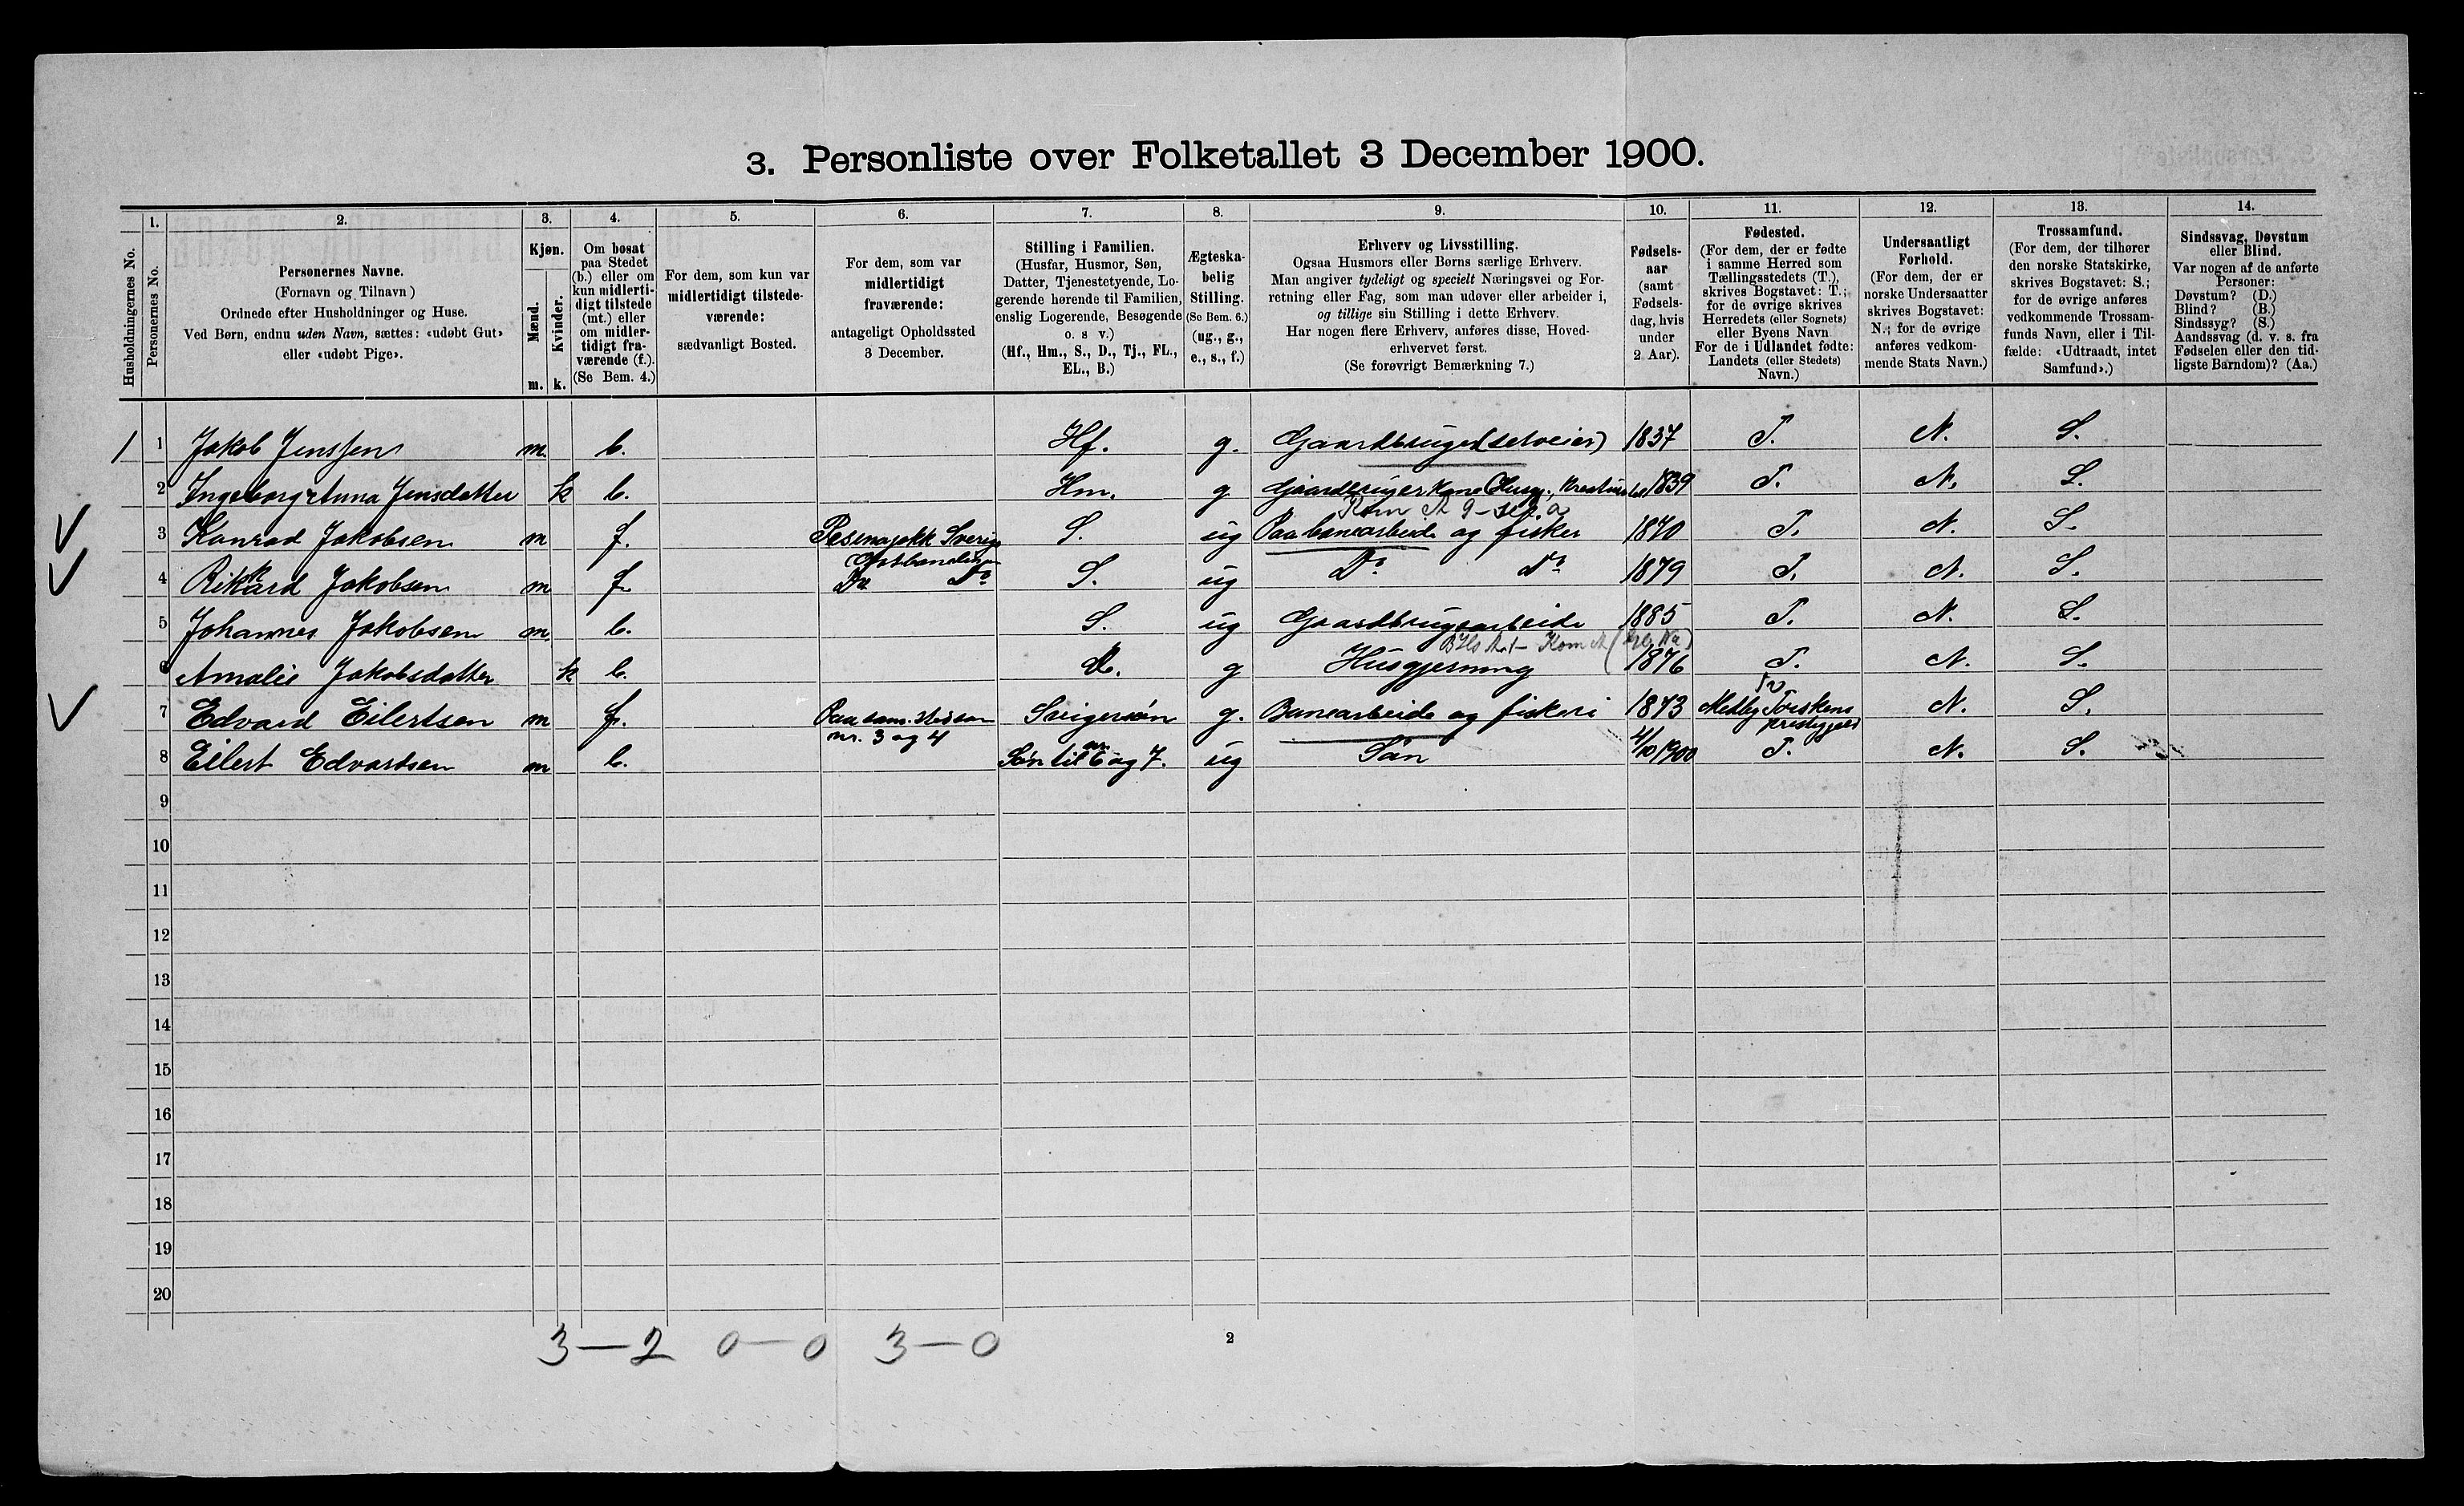 3. Personliste over Folketallet 3 December 1900.
Husholdningernes No.
1.
Personernes No.
2.
Personernes Navne.
(Fornavn og Tilnavn)
Ordnede efter Husholdninger og Huse.
Ved Børn, endnu uden Navn, sættes: «udøbt Gut»
eller «udøbt Pige».
3.
Kjøn.
Mænd.
Kvinder.
m. k.
4.
Om bosat
paa Stedet
(b.) eller om
kun midlerti-
digt tilstede
(mt.) eller
om midler-
tidigt fra-
værende (f.).
(Se Bem. 4.)
5.
For dem, som kun var
midlertidigt tilstede-
værende:
sædvanligt Bosted.
6.
For dem, som var
midlertidigt
fraværende:
antageligt Opholdssted
3 December.
7.
Stilling i Familien.
(Husfar, Husmor, Søn,
Datter, Tjenestetyende, Lo-
gerende hørende til Familien,
enslig Logerende, Besøgende
o. s v.)
(Hf., Hm., S., D., Tj., FL.,
EL., B.)
8.
Ægteska-
belig
Stilling.
(Se Bem. 6.)
(ug., g.,
e., s., f.)
9.
Erhverv og Livsstilling.
Ogsaa Husmors eller Børns særlige Erhverv.
Man angiver tydeligt og specielt Næringsvei og For-
retning eller Fag, som man udøver eller arbeider i,
og tillige sin Stilling i dette Erhverv.
Har nogen flere Erhverv, anføres disse, Hoved-
erhvervet først.
(Se forøvrigt Bemærkning 7.)
10.
Fødsels-
aar
(samt
Fødsels-
dag, hvis
under
2 Aar).
11.
Fødested.
(For dem, der er fødte
i samme Herred som
Tællingsstedets (T.),
skrives Bogstavet: T.;
for de øvrige skrives
Herredets (eller Sognets)
eller Byens Navn
For de i Udlandet fødte:
Landets (eller Stedets)
Navn.)
12.
Undersaatligt
Forhold.
(For dem, der er
norske Undersaatter
skrives Bogstavet:
N.; for de øvrige
anføres vedkom-
mende Stats Navn.)
13.
Trossamfund.
(For dem, der tilhører
den norske Statskirke,
skrives Bogstavet: S.;
for de øvrige anføres
vedkommende Trossam-
funds Navn, eller i Til-
fælde: «Udtraadt, intet
Samfund».)
14.
Sindssvag, Døvstum
eller Blind.
Var nogen af de anførte
Personer:
Døvstum? (D.)
Blind? (B.)
Sindssyg? (S.)
Aandssvag (d. v. s. fra
Fødselen eller den tid-
ligste Barndom)? (Aa.)
1 1 Jakob Jenssen m. b. Hf. g. Gaardbruger (selveier) 1837 T. N. S.
2 Ingeborg Anna Jensdatter k b. Hm. g Gaardbruger Kone 1839 T. N. S.
3 Konrad Jakobsen m f. Sverige S. ug Paa banearbeide og fisker 1870 T. N. S.
Ofotbanelinjen
4 Rikkard Jakobsen m f. Do Do S. ug Do Do 1879 T. N. S.
5 Johannes Jakobsen m. b. S. ug Gaardbrugsarbeide 1885 T. N. S.
6 Amalie Jakobsdatter k b. D. g Husgjerning 1876 T. N. S.
7 Edvard Eilertsen m f. Paa sam. sted som Svigersøn g. Banearbeide og fiskeri 1873 Medby Torskens N. S.
nr. 3 og 4 Prestegjeld
8 Eilert Edvardsen m b. Søn til nr 6 og 7. ug Søn 4/10 1900 T. N. S.
9
10
11
12
13
14
15
16
17
18
19
20
3 — 2 0 — 0 3 — 0
2